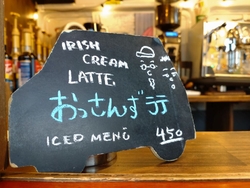 IRISH
CREAM
LATTE.
おっさんずラテ
ICED MENU
450